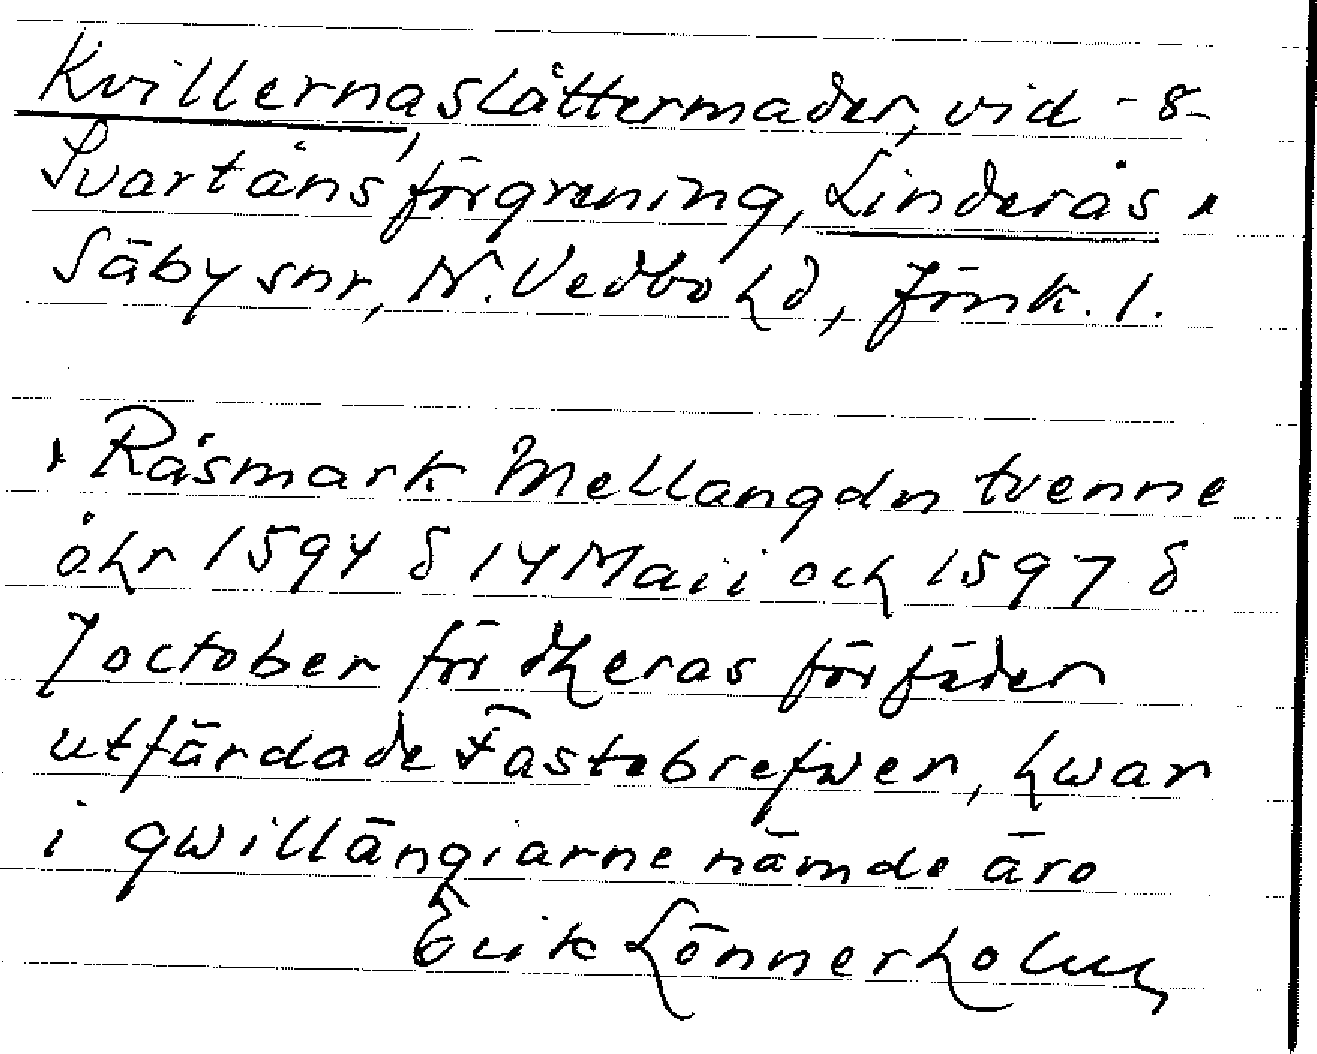 Kvillerna, slåttermader, vid - 8 -
Svartåns förgrening, Linderås o
Säby snr, N. Vedbo hd, Jönk. l.
Råsmark Mellangdn tvenne
åhr 1594 d 14 Maii och 1597 d
7 october för dheras förfäder
utfärdade Fastebrefwer, hwar
i qwillängiarne nämde äro
Erik Lönnerholm